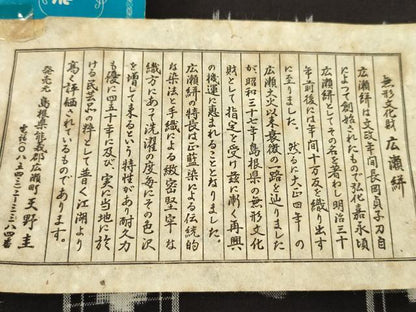 無形文化財 広瀬絣
広瀬絣は文政年間長岡貞子刀自
によって創始されたもので弘化嘉永頃
広瀬絣としてその名を著わし明治三十
年前後には年間十万反を織り出す
に至りました。然るに大正四年の
広瀬大火以来衰微の一路を辿りました
が昭和三十七年島根県の無形文化
財として指定を受け茲に漸く再興
の機運に恵まれることとなりました。
広瀬絣の特長は正藍染による伝統的
な染法と手織による緻密堅牢な
織方にあって洗濯の度毎にその色沢
を増して来るという特性があり耐久力
も優に四五十年に及び実に当地に於
ける民芸品の粋として普く江湖より
高く評価されているものであります。
発売元 島根県能義郡広瀬町 天野圭
電話〇八五四三-二-二三八四番